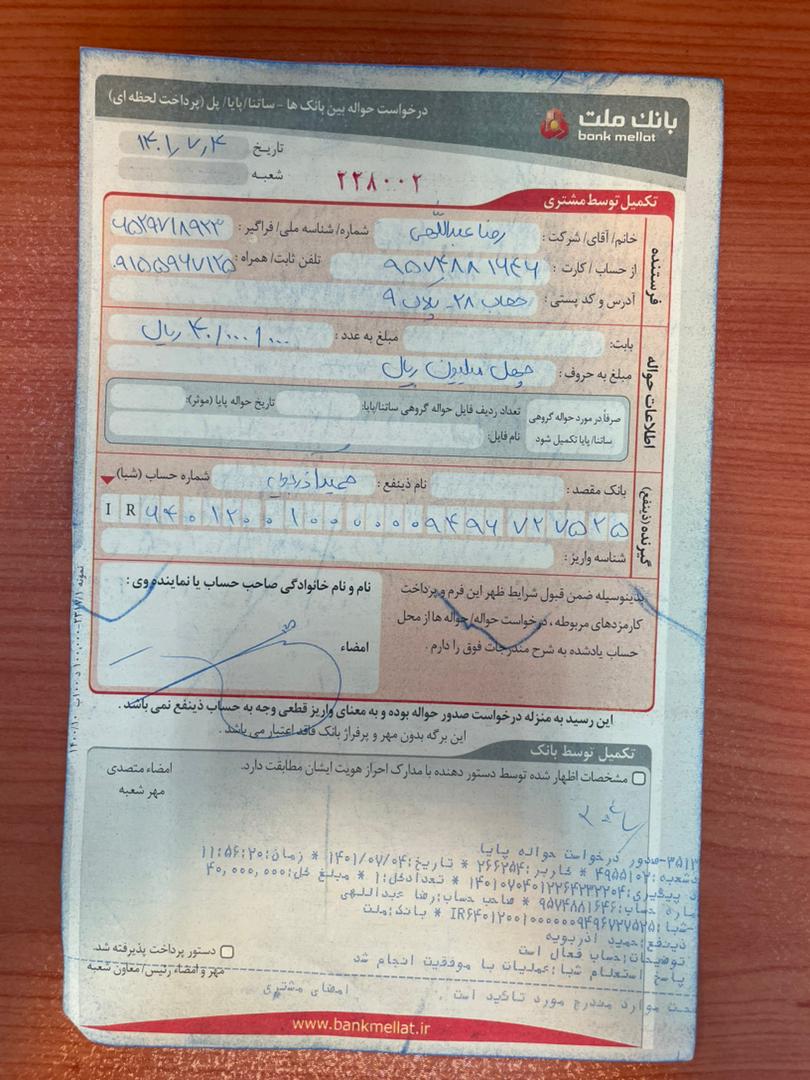 بانک ملت
bank mellat
درخواست حواله بین بانک ها - ساتنا/پایا/ پل (پرداخت لحظه ای)
تاریخ ۱۴۰۱/۷/۴
شعبه
۲۲۸۰۰۲
تکمیل توسط مشتری
فرستنده
خانم/ آقای/ شرکت : رضا عبداللهی شماره/ شناسه ملی/ فراگیر :
از حساب / کارت : ۹۵۷۴۸۸۱۶۴۶ تلفن ثابت/ همراه : ۰۹۱۵۵۹۶۷۱۲۵
آدرس و کد پستی : ۲۸ - پلاک ۹
اطلاعات حواله
بابت: مبلغ به عدد : ۴۰/۰۰۰/۰۰۰ ریال
مبلغ به حروف : چهل میلیون ریال
صرفاً در مورد حواله گروهی ساتنا/ پایا تکمیل شود
تعداد ردیف فایل حواله گروهی ساتنا/پایا: تاریخ حواله پایا (موثر):
نام فایل:
گیرنده (ذینفع)
بانک مقصد : نام ذینفع : حمید آذربویه شماره حساب (شبا)
IR۶۴۰۱۲۰۰۱۰۰۰۰۰۰۹۴۹۶۷۲۷۵۲۵
شناسه واریز :
بدینوسیله ضمن قبول شرایط ظهر این فرم و پرداخت
کارمزدهای مربوطه ، درخواست حواله/ حواله ها از محل
حساب یادشده به شرح مندرجات فوق را دارم .
نام و نام خانوادگی صاحب حساب یا نماینده وی :
امضاء
این رسید به منزله درخواست صدور حواله بوده و به معنای واریز قطعی وجه به حساب ذینفع نمی باشد .
این برگه بدون مهر و پرفراژ بانک فاقد اعتبار می باشد .
تکمیل توسط بانک
مشخصات اظهار شده توسط دستور دهنده با مدارک احراز هویت ایشان مطابقت دارد.
امضاء متصدی
مهر شعبه
۳۵۱۳-صدور درخواست حواله پایا
شعبه:۴۹۵۵۱۰۲ * کاربر:۲۶۶۲۵۴ * تاریخ:۱۴۰۱/۰۷/۰۴ * زمان:۱۱:۵۶:۲۰
پیگیری:۱۴۰۱۰۷۰۴۰۱۲۲۶۴۲۳۲۲۰۴ * تعدادکل:۱ * مبلغ کل:۴۰,۰۰۰,۰۰۰
حساب:۹۵۷۴۸۸۱۶۴۶ * صاحب حساب:رضا عبداللهی
شبا:IR۶۴۰۱۲۰۰۱۰۰۰۰۰۰۹۴۹۶۷۲۷۵۲۵ * بانک:ملت
ذینفع:حمید آذربویه
توضیحات:حساب فعال است
پاسخ استعلام شبا:عملیات با موفقیت انجام شد
صحت موارد مندرج مورد تائید است .
امضای مشتری
دستور پرداخت پذیرفته شد.
مهر و امضاء رئیس/ معاون شعبه
www.bankmellat.ir